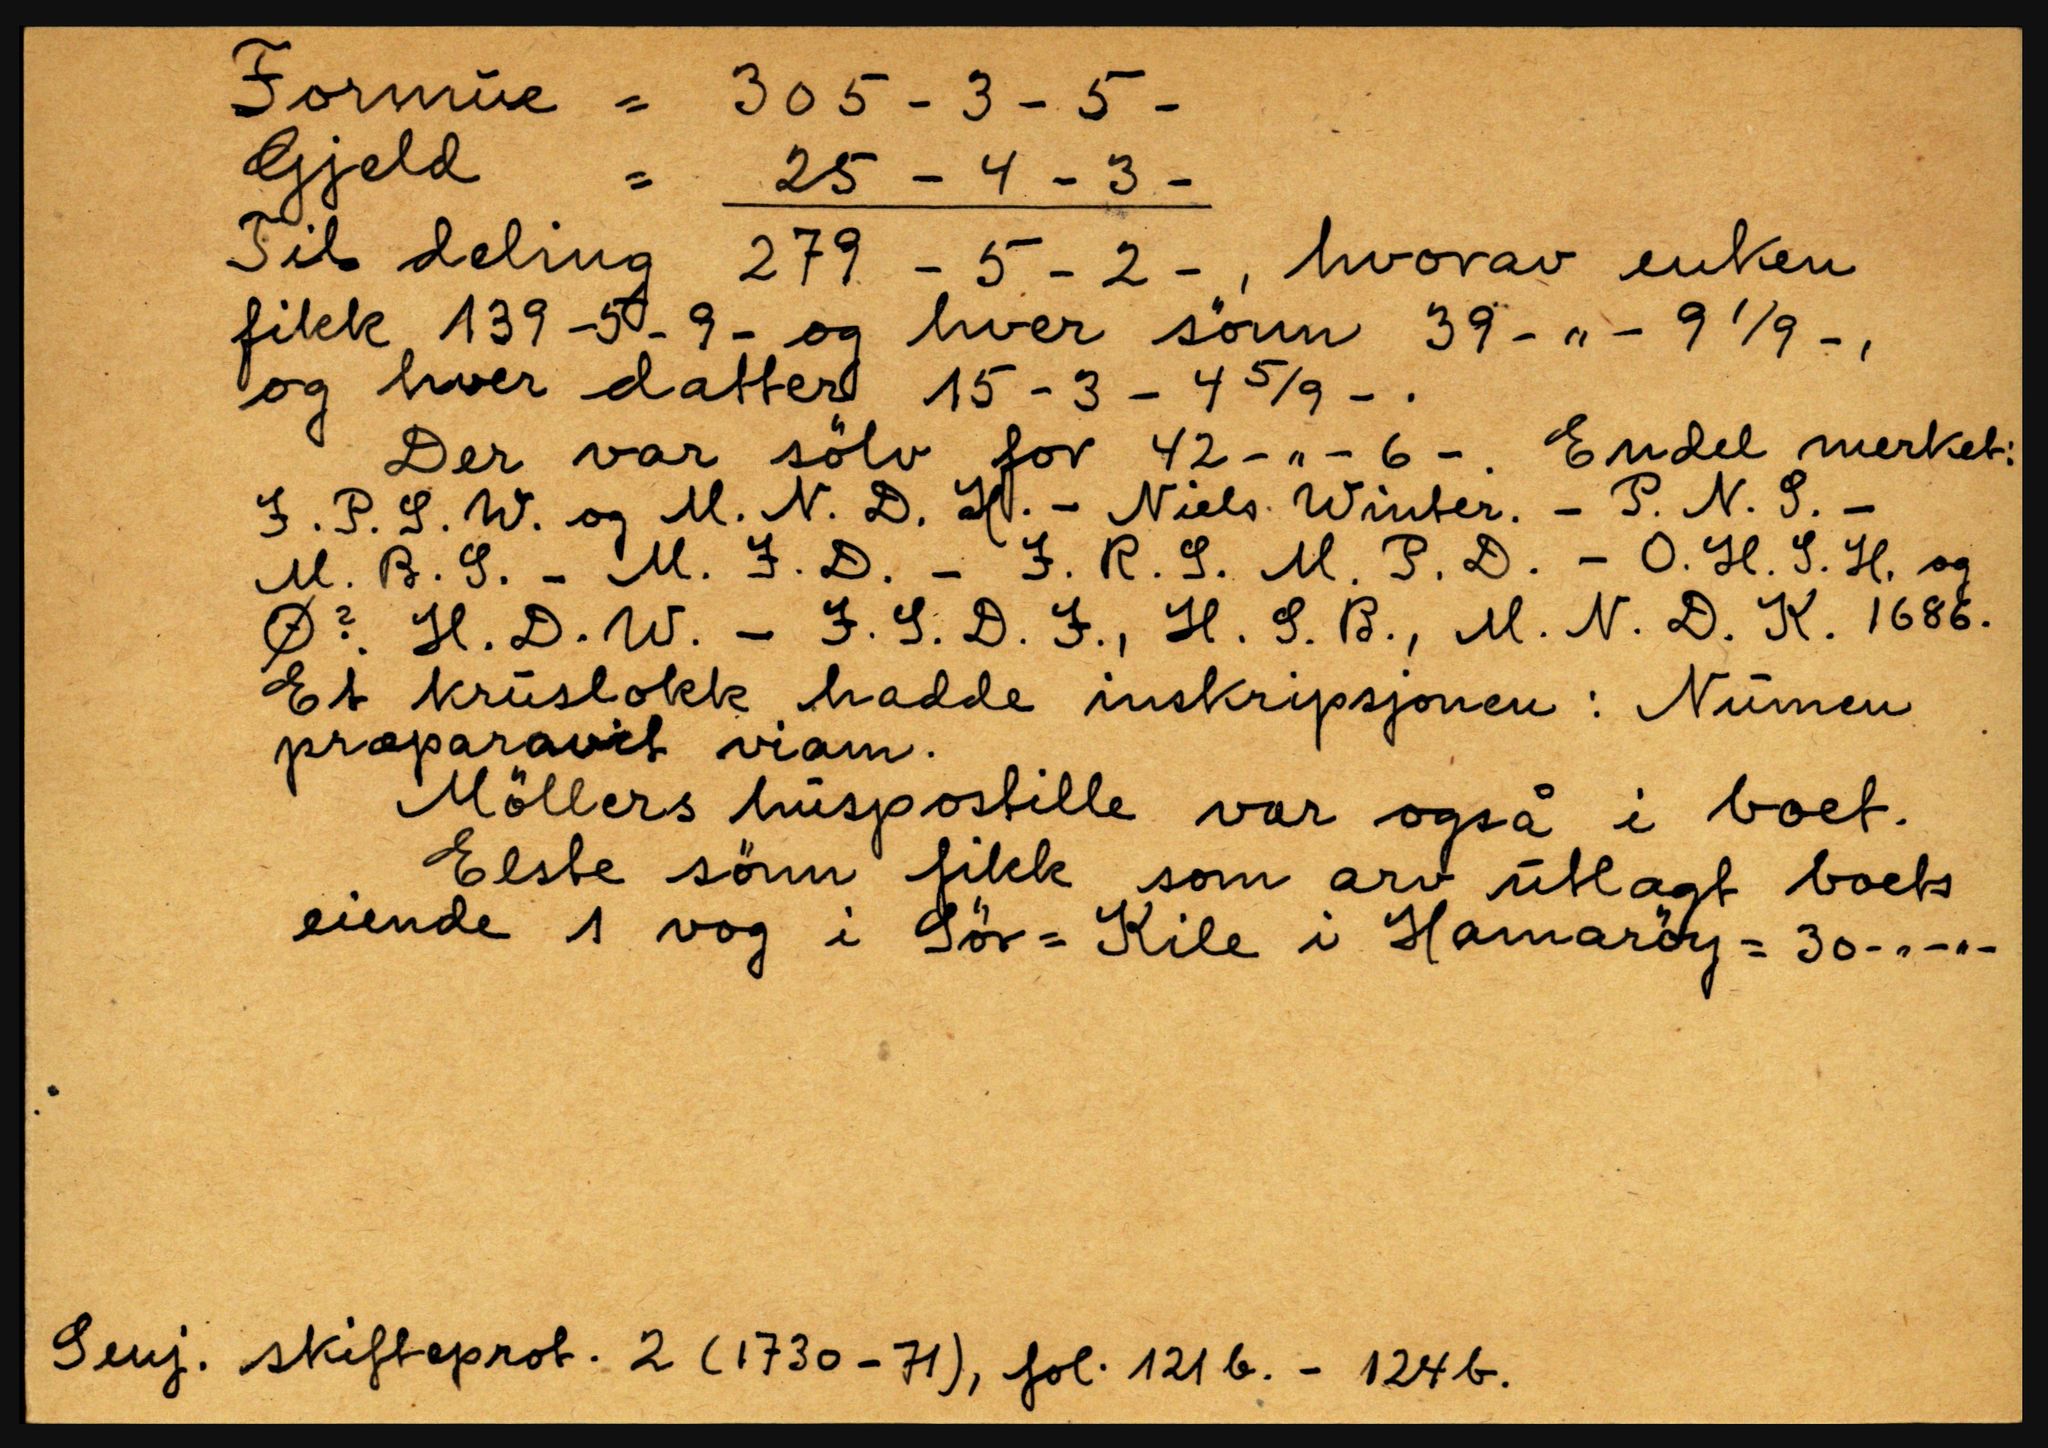 Formue = 305 - 3 - 5 -
Gjeld = 25 - 4 - 3 -
Til deling 279 - 5 - 2 -, hvorav enken
fikk 139 - 5 - 9 - og hver sönn 39 - " - 9 1/9 -,
og hver datter 15 - 3 - 4 5/9 - .
Der var sölv for 42 - " - 6 - . Endel merket:
J. P. S. W. og M. N. D. H. - Niels Winter. - P. N. S. -
M. B. S. - M. J. D. - J. R. S. M. P. D. - O. H. S. H. og
Ø?. H. D. W. - J. S. D. J., H. S. B., M. N. D. K. 1686.
Et kruslokk hadde inskripsjonen: Numen
præparavit viam.
Möllers huspostille var også i boet.
Elste sönn fikk som arv utlagt boets
eiende 1 vog i Sör = Kile i Hamaröy = 30 - " - " -
Senj. skifteprot. 2 (1730 - 71), fol. 121 b. - 124 b.